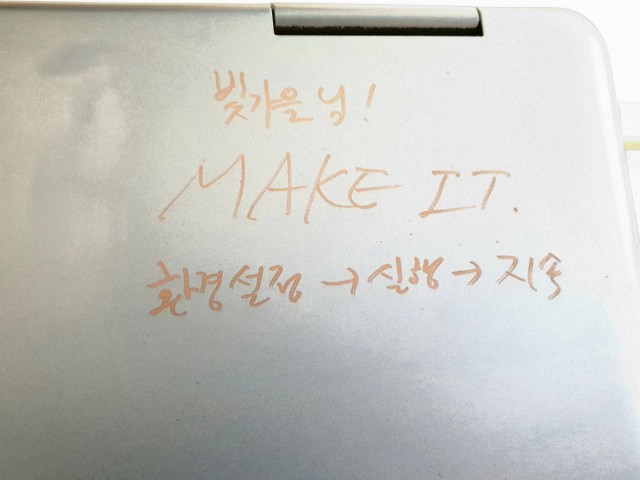 빛가을님!
MAKE IT.
환경설정 → 실행 → 지속